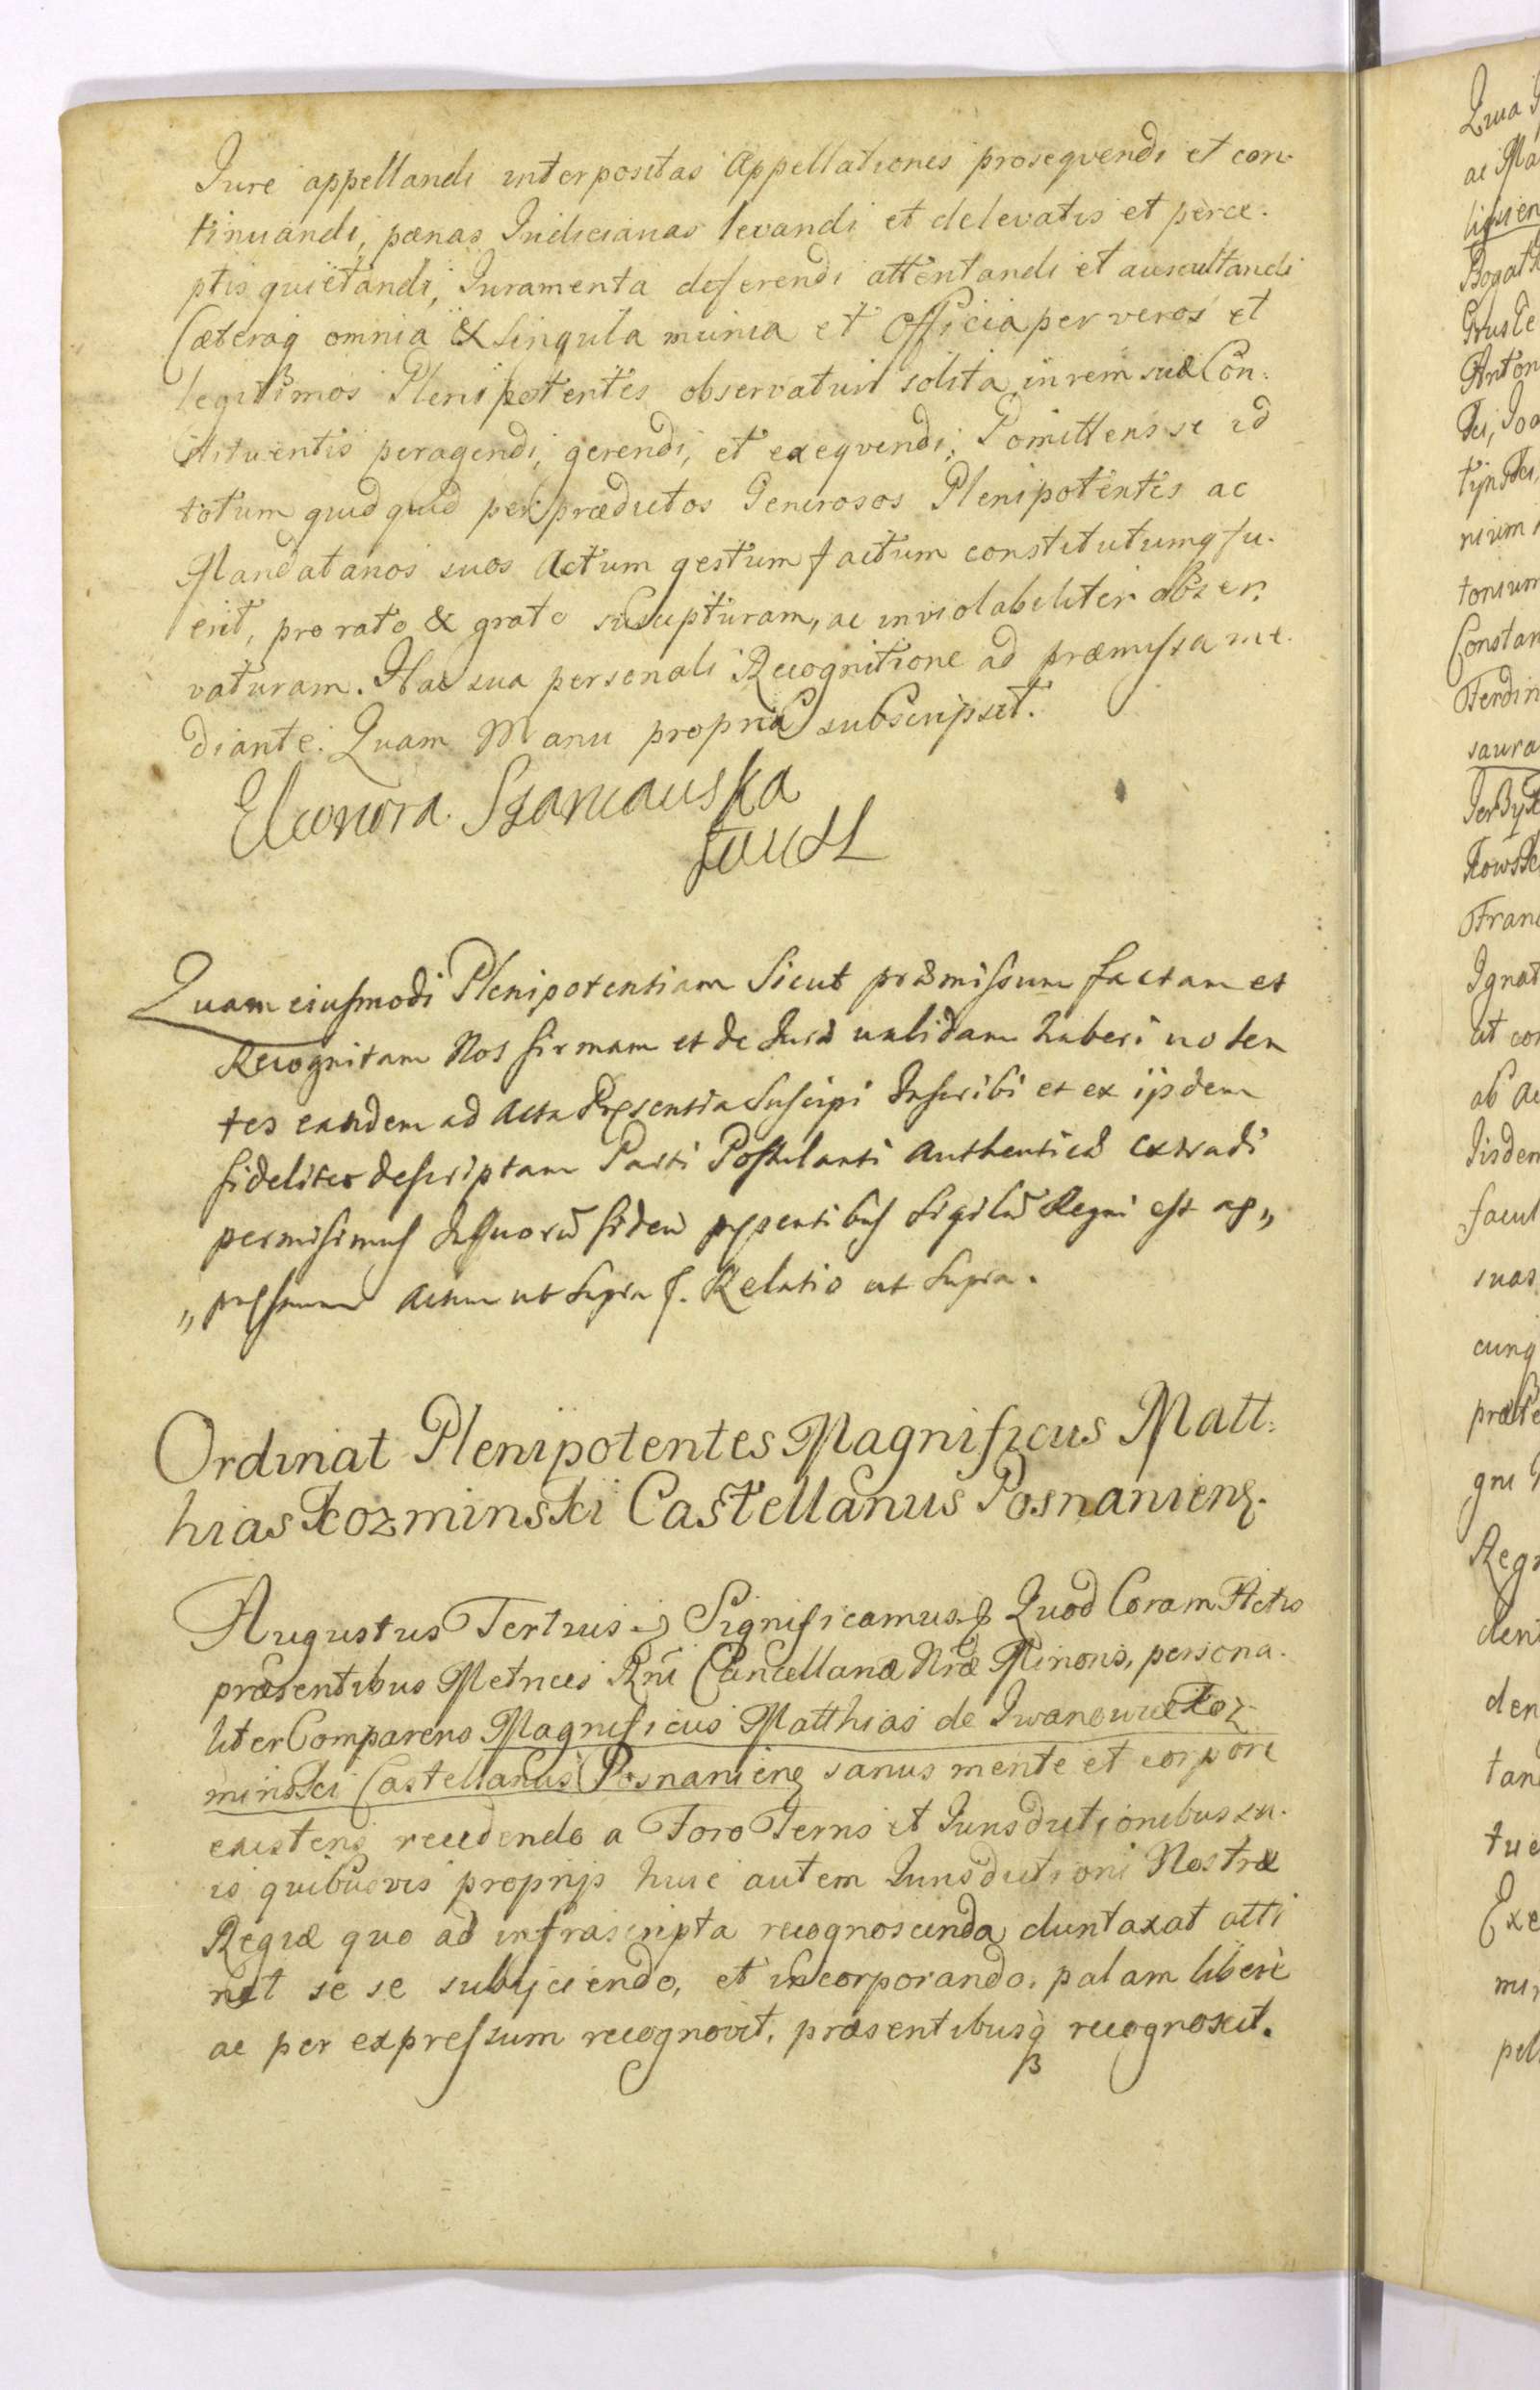 Jure appellandi interpositas Appellationes proseqvendi et con-
tinuandi, pænas Judicianas levandi et delevatis et perce-
ptis quietandi, Juramenta deferendi attentandi et auscultandi
Cæteraq omnia & singula munia et Officia per veros et
legitimos Plenipotentes observatum solita in rem suæ Con-
stituentis peragendi, gerendi, et exeqvendi; Pomittens se id
totum quidquid per prædictos Generosos Plenipotentes ac
Mandatarios suos Actum gestum factum constitutumq fu-
erit, pro rato & grato suscepturam, ac inviolabiliter obser-
vaturam. Hac sua personali Recognitione ad præmissa me-
diante. Quam Manu propria subscripsit.
Eleonora Szaniauska

Quam eiusmodi Plenipotentiam sicut præmissum factam et
Recognitam Nos firmam et de Jure validam haberi volen
tes eandem ad Acta Præsentia Suscipi Inscribi et ex ijsdem
fideliter descriptam Parti Postulanti Authentice extradi
permisimus In quorū fidem Sigilū Regni est ap„
„pressum Actum ut supra Relatio ut supra.
Ordinat Plenipotentes Magnificus Matt-
hias Kozminski Castellanus Posnaniens.
Augustus Tertius Significamus Quod Coram Actis
præsentibus Metrices Rni Cancellariæ Nræ Minoris, persona-
liter Comparens Magnificus Matthias de Iwanowice Koz-
minski Castellanus Posnaniens sanus mente et corpore
existens recedendo a Foro Terris et Jurisdictionibus su-
is quibusvis proprijs huic autem Jurisdictioni Nostræ
Regiæ quo ad infrascripta recognoscenda duntaxat atti
net se se subijciendo, et incorporando, palam liberè
ac per expressum recognovit, præsentibusq recognoscit.